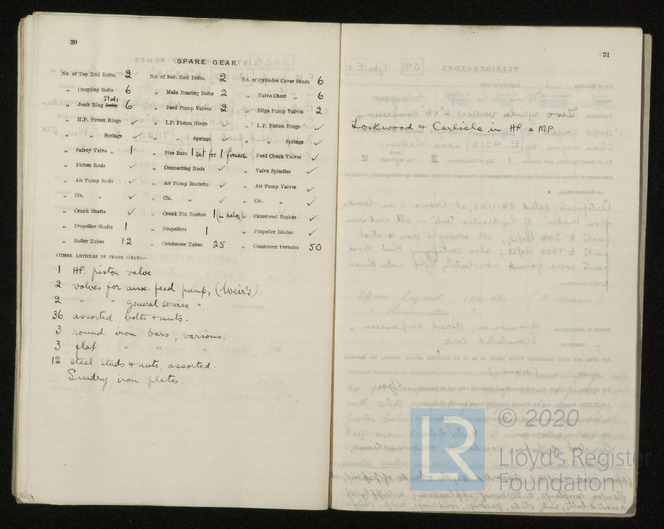 30
SPARE GEAR
No. of Top End Bolts. 2 No. of Bot. End Bolts. 2 No. of Cylinder Cover Studs 6
„ Coupling Bolts 6 „ Main Bearing Bolts 2 „ Valve Chest „ 6
„ Junk Ring Bolts Studs 6 „ Feed Pump Valves 2 „ Bilge Pump Valves 2
„ H.P. Piston Rings ✓ „ I.P. Piston Rings ✓ „ L.P. Piston Rings ✓
„ „ Springs ✓ „ „ Springs ✓ „ „ Springs ✓
„ Safety Valve „ 1 „ Fire Bars 1 set for 1 furnace „ Feed Check Valves ✓
„ Piston Rods ✓ „ Connecting Rods ✓ „ Valve Spindles ✓
„ Air Pump Rods ✓ „ Air Pump Buckets ✓ „ Air Pump Valves ✓
„ Cir. „ ✓ „ Cir. „ ✓ „ Cir. „ ✓
„ Crank Shafts ✓ „ Crank Pin Bushes 1 (in halves) „ Crosshead Bushes ✓
„ Propeller Shafts 1 „ Propellers 1 „ Propeller Blades ✓
„ Boiler Tubes 12 „ Condenser Tubes 25 „ Condenser Ferrules 50
OTHER ARTICLES OF SPARE GEAR:—
1 HP. piston valve
2 valves for aux. feed pump, (Weir's)
2 „ „ general service „
36 assorted bolts + nuts.
3 round iron bars, various.
3 flat „ „ „
12 steel studs + nuts, assorted.
Sundry iron plates.
31
Lockwood & Carlisle in HP & MP.
LR
© 2020
Lloyd's Register
Foundation